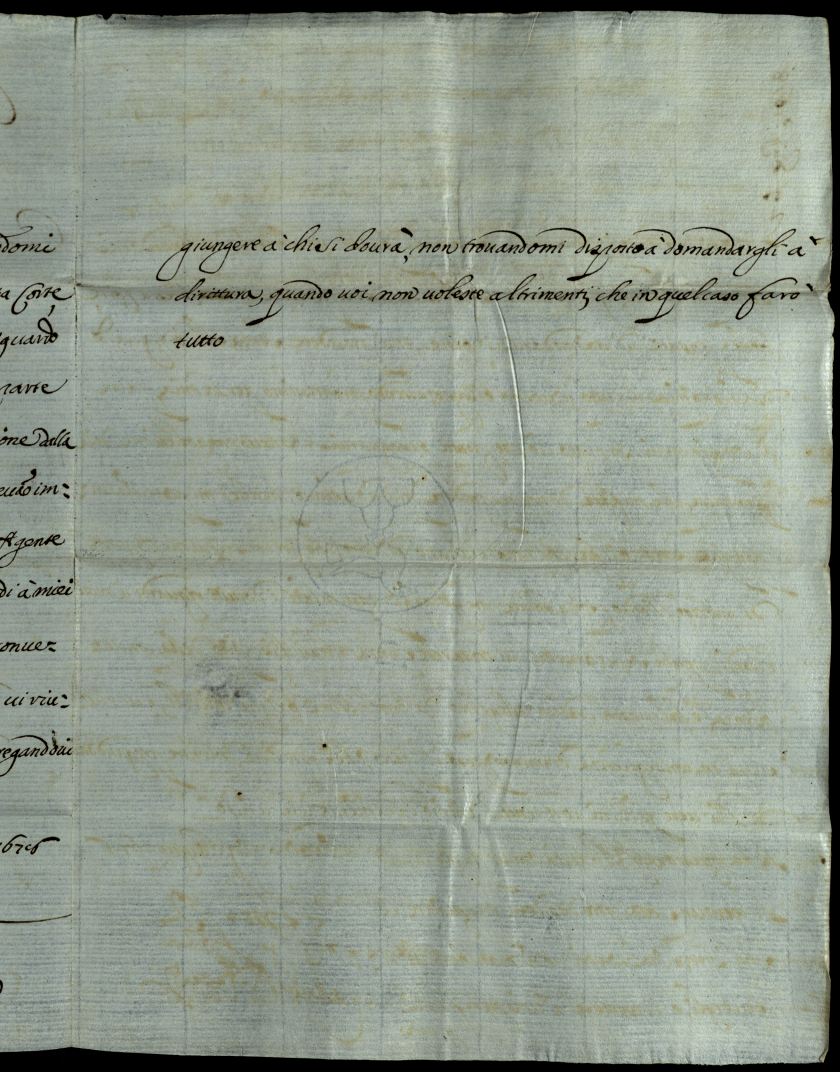 ndomi
ta Corte
quando
parte
one della
im=
Agente
di à miei
conuer=
ui riu=
regandoui
giungere à chi si dourà, non trouandomi disposto à domandargli à
dirittura, quando uoi non uoleste altrimenti, che in quel caso farò
tutto